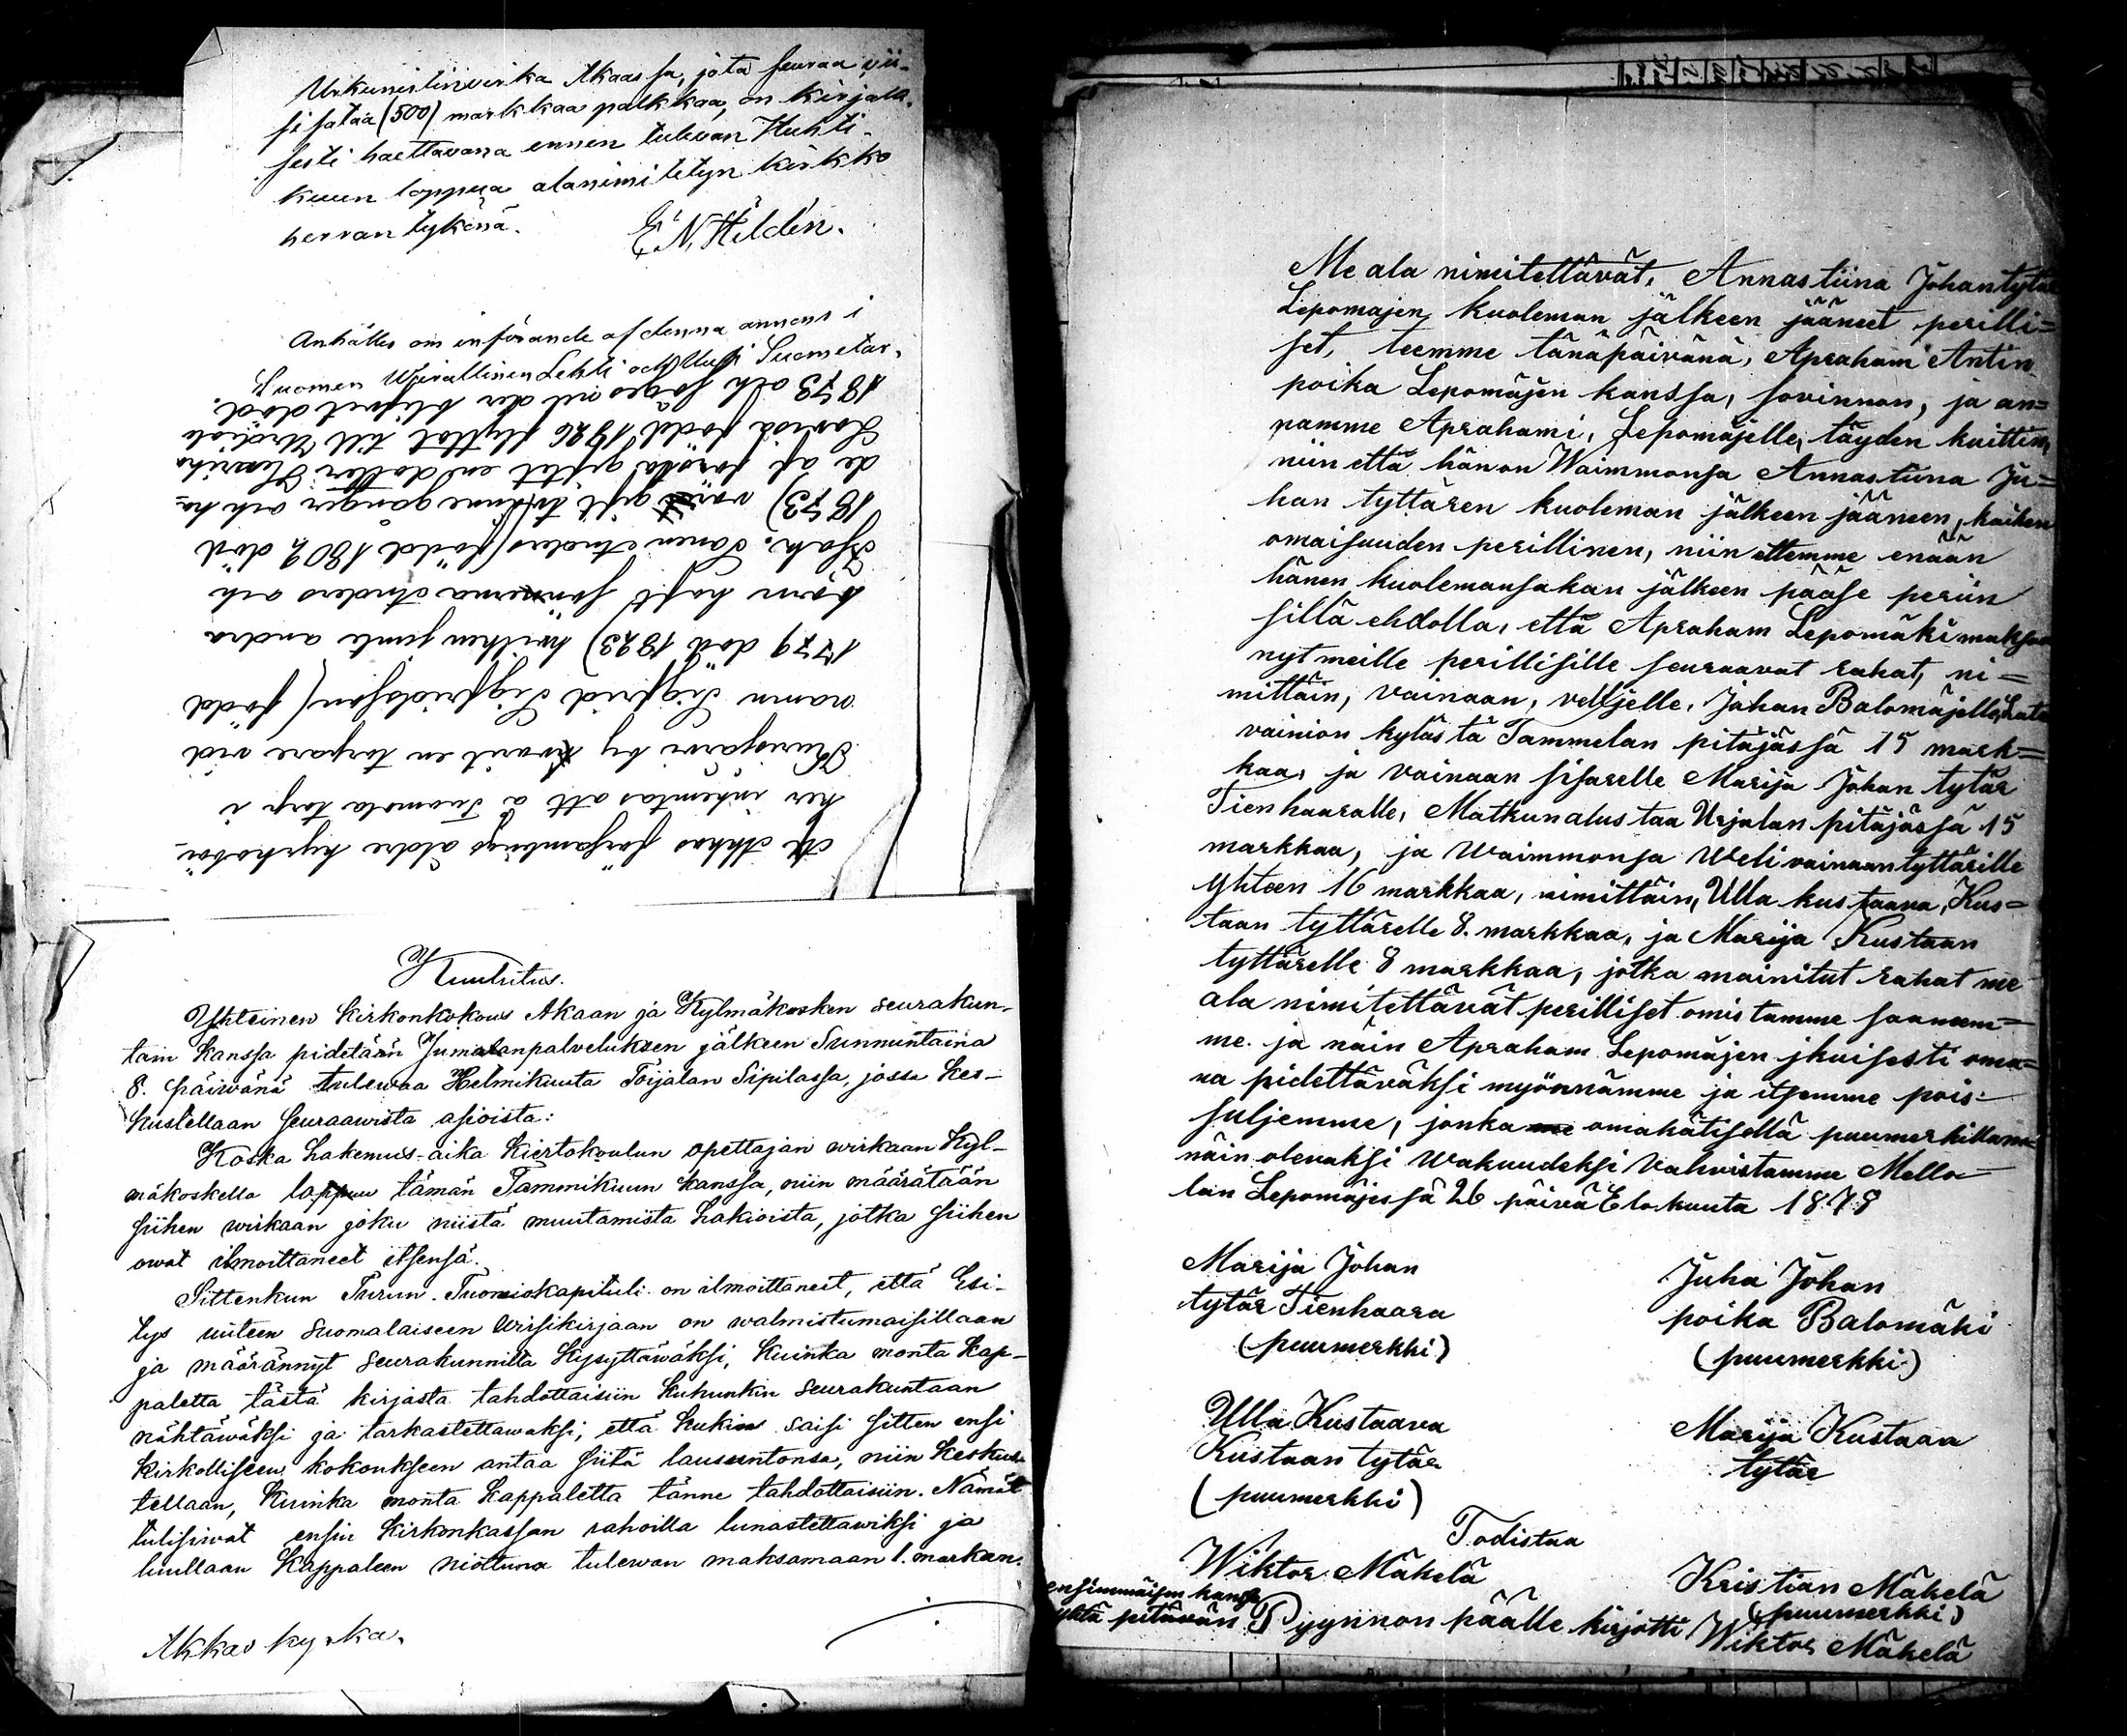 Urkunistinvirka Akaassa, jota seuraa vii-
si sataa (500) markkaa palkkaa, on kirjalli-
sesti haettavana ennen tulevan Huhti-
kuun loppua alanimitetyn kirkko
herran tykönä.
E. N. Heldén.
Anhålles om införande af denna annons i
Suomen Wirallinen Lehti och Uusi Suometar.
Af Akkas församlings äldre kyrkobök-
ker inhemtas att å Tuomola torp i
Kurisjärvi by varit en torpare vid
namn Sigfrid Sigfridsson (född
1779 död 1823) hvilken jemte andra
barn haft sönerna Anders och
Isak. Sonen Anders (född 1802, död
1873) var gift tvenne gånger och ha-
de af första giftet en dotter Henrika
Lovisa född 1826 flyttat till Urdiala
1873 och säges nu der blifvit död.
Kuulutus.
Yhteinen kirkonkokous Akaan ja Kylmäkosken seurakun-
tain kanssa pidetään Jumalanpalveluksen jälkeen Sunnuntaina
8. päiwänä tulewaa Helmikuuta Toijalan Sipilassa, jossa kes-
kustellaan seuraawista asioista:
Koska hakemus-aika kiertokoulun opettajan wirkaan Kyl-
mäkoskella loppuu tämän Tammikuun kanssa, niin määrätään
siihen wirkaan joku niistä muutamista hakioista, jotka siihen
owat ilmoittaneet itsensä.
Sittenkun Turun Tuomiokapituli on ilmoittaneet, että Esi-
tys uuteen Suomalaiseen Wirsikirjaan on walmistumaisillaan
ja määrännyt seurakunnilta kysyttäwäksi, kuinka monta kap-
paletta tästä kirjasta tahdottaisiin kuhunkin seurakuntaan
nähtäwäksi ja tarkastettawaksi; että kukin saisi sitten ensi
kirkolliseen kokoukseen antaa siitä lausuntonsa, niin keskus-
tellaan, kuinka monta kappaletta tänne tahdottaisiin. Nämät
tulisiwat ensin kirkonkassan rahoilla lunastettawiksi ja
luullaan kappaleen niottuna tulewan maksamaan 1. markan.
Akkas kyrka.
Me ala nimitettävät, Annastiina Johantytär
Lepomäjen, kuoleman jälkeen jääneet perilli=
set, teemme tänäpäivänä, Apraham Antin
poika Lepomäjen kanssa, sovinnon, ja an=
namme Aprahami, Lepomäjelle, täyden kuittin,
niin että hän on Waimmonsa Annastiina Ju=
han tyttären kuoleman jälkeen jääneen, kaiken
omaisuuden perillinen, niin ettemme enään
hänen kuolemansakan jälkeen pääse periin
sillä ehdolla, että Apraham Lepomäki maksaa
nyt meille perillisille seuraavat rahat, ni=
mittäin, vainaan, velljelle, Johan Balomäjelle, Lata
vainion kylästä Tammelan pitäjässä 15 mark=
kaa, ja vainaan sisarelle Marija Johan tytär
Tienhaaralle, Matkunalustaa Urjalan pitäjässä 15
markkaa, ja Waimmonsa Weli vainaan tyttärille
yhteen 16 markkaa, nimittäin, Ulla kustaava, Kus=
taan tyttärelle 8. markkaa, ja Marija Kustaan
tyttärelle 8 markkaa, jotka mainitut rahat me
ala nimitettävät perilliset omistamme saaneem=
me. ja näin Apraham Lepomäjen jkuisesti oma=
na pidettäväksi myönnämme ja itsemme pois=
suljemme, jonka me omakätisellä puumerkillämme
näin olevaksi Wakuudeksi Vahvistamme Mello=
lan Lepomäjessä 26 päivä Elokuuta 1878
Marija Johan
tytär Tienhaara
(puumerkki)
Juha Johan
poika Balomäki
(puumerkki)
Ulla Kustaava
Kustaan tytär
(puumerkki)
Marija Kustaan
tytär
Todistaa
Wiktor Mäkelä
Kristian Mäkelä
(puumerkki)
ensimmäisen kanssa
yhtä pitävän Pyynnön päälle kirjotti Wiktor Mäkelä